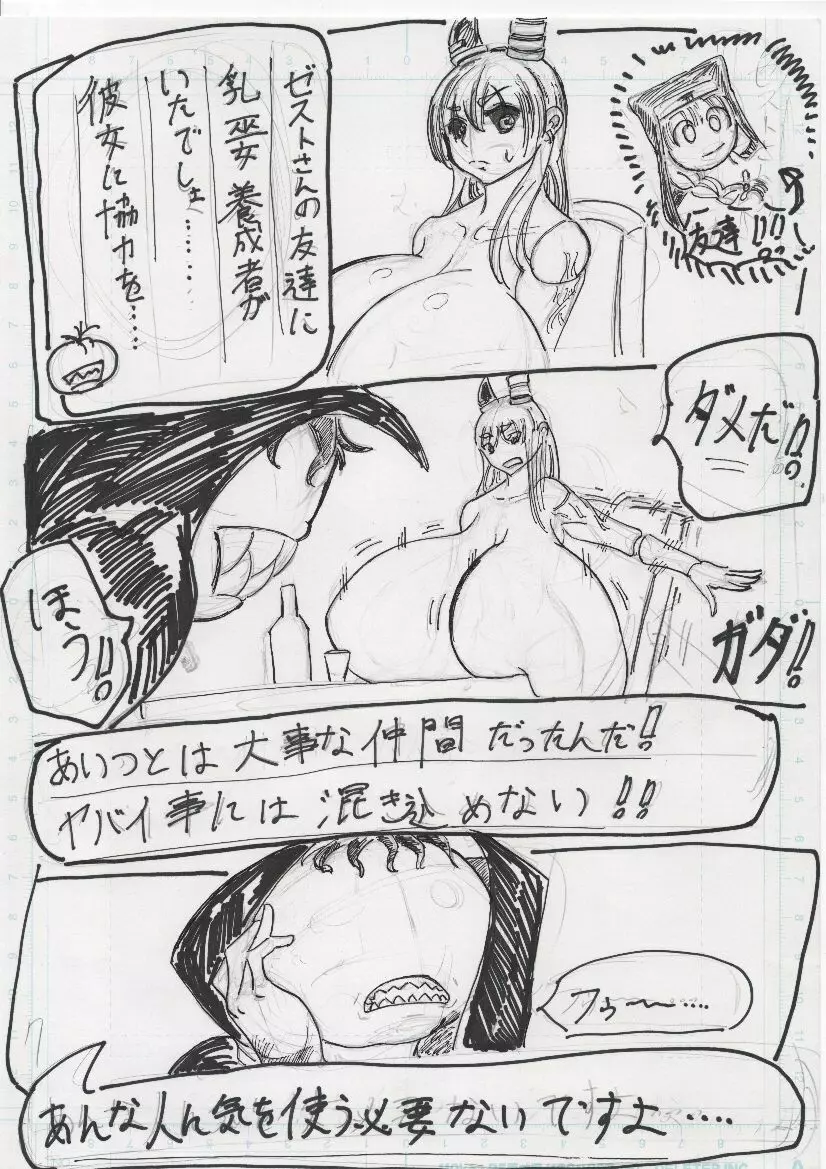 友達!!
ゼストさんの友達に
乳巫女養成者が
いたでしょ……
彼女に協力を……
ダメだ!!
ガダ!
ほう!!
あいつとは大事な仲間だったんだ!!
ヤバイ事には混き込めない!!
フゥ〜〜……
あんな人に気を使う必要ないですよ……